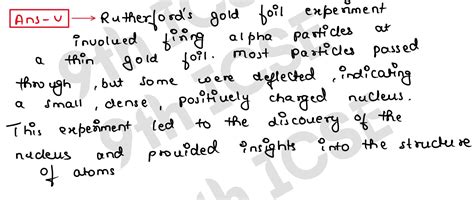 Ans-v → Rutherford's gold foil experiment
involved firing alpha particles at
a thin gold foil. most particles passed
through, but some were deflected, indicating
a small, dense, positively charged nucleus.
This experiment led to the discovery of the
nucleus and provided insights into the structure
of atoms
9th ICSE
9th ICSE
9th ICSE